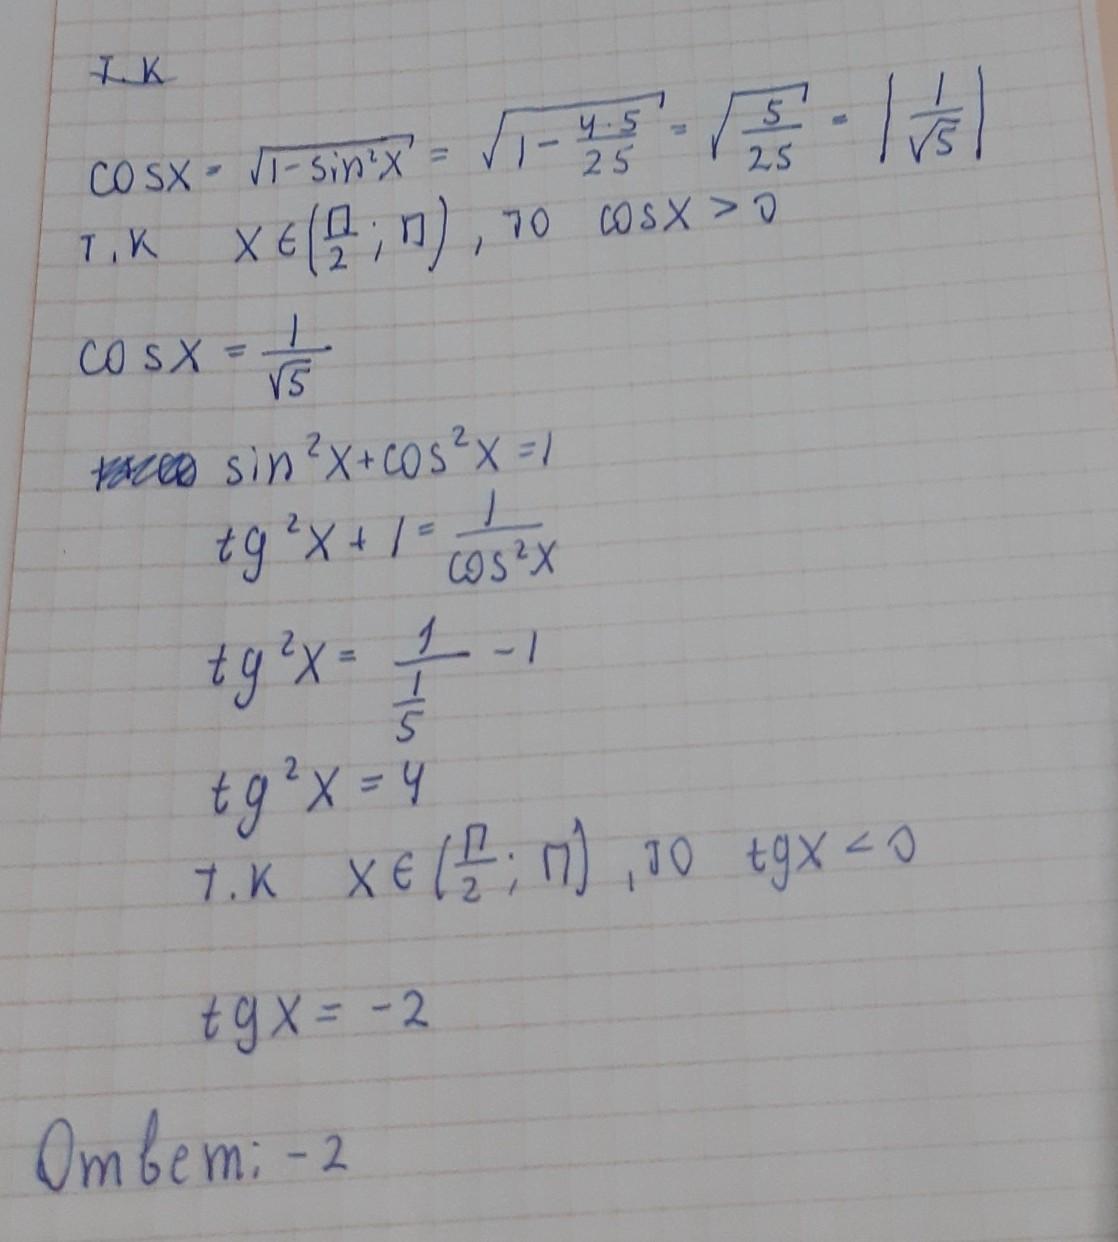 т.к
cosx = √(1-sin²x) = √(1 - 4·5/25) = √(5/25) = |1/√5|
т.к x ∈ (П/2; П), то cosx > 0
cosx = 1/√5
sin²x + cos²x = 1
tg²x + 1 = 1/cos²x
tg²x = 1/(1/5) - 1
tg²x = 4
т.к x ∈ (П/2; П), то tgx < 0
tgx = -2
Ответ: -2